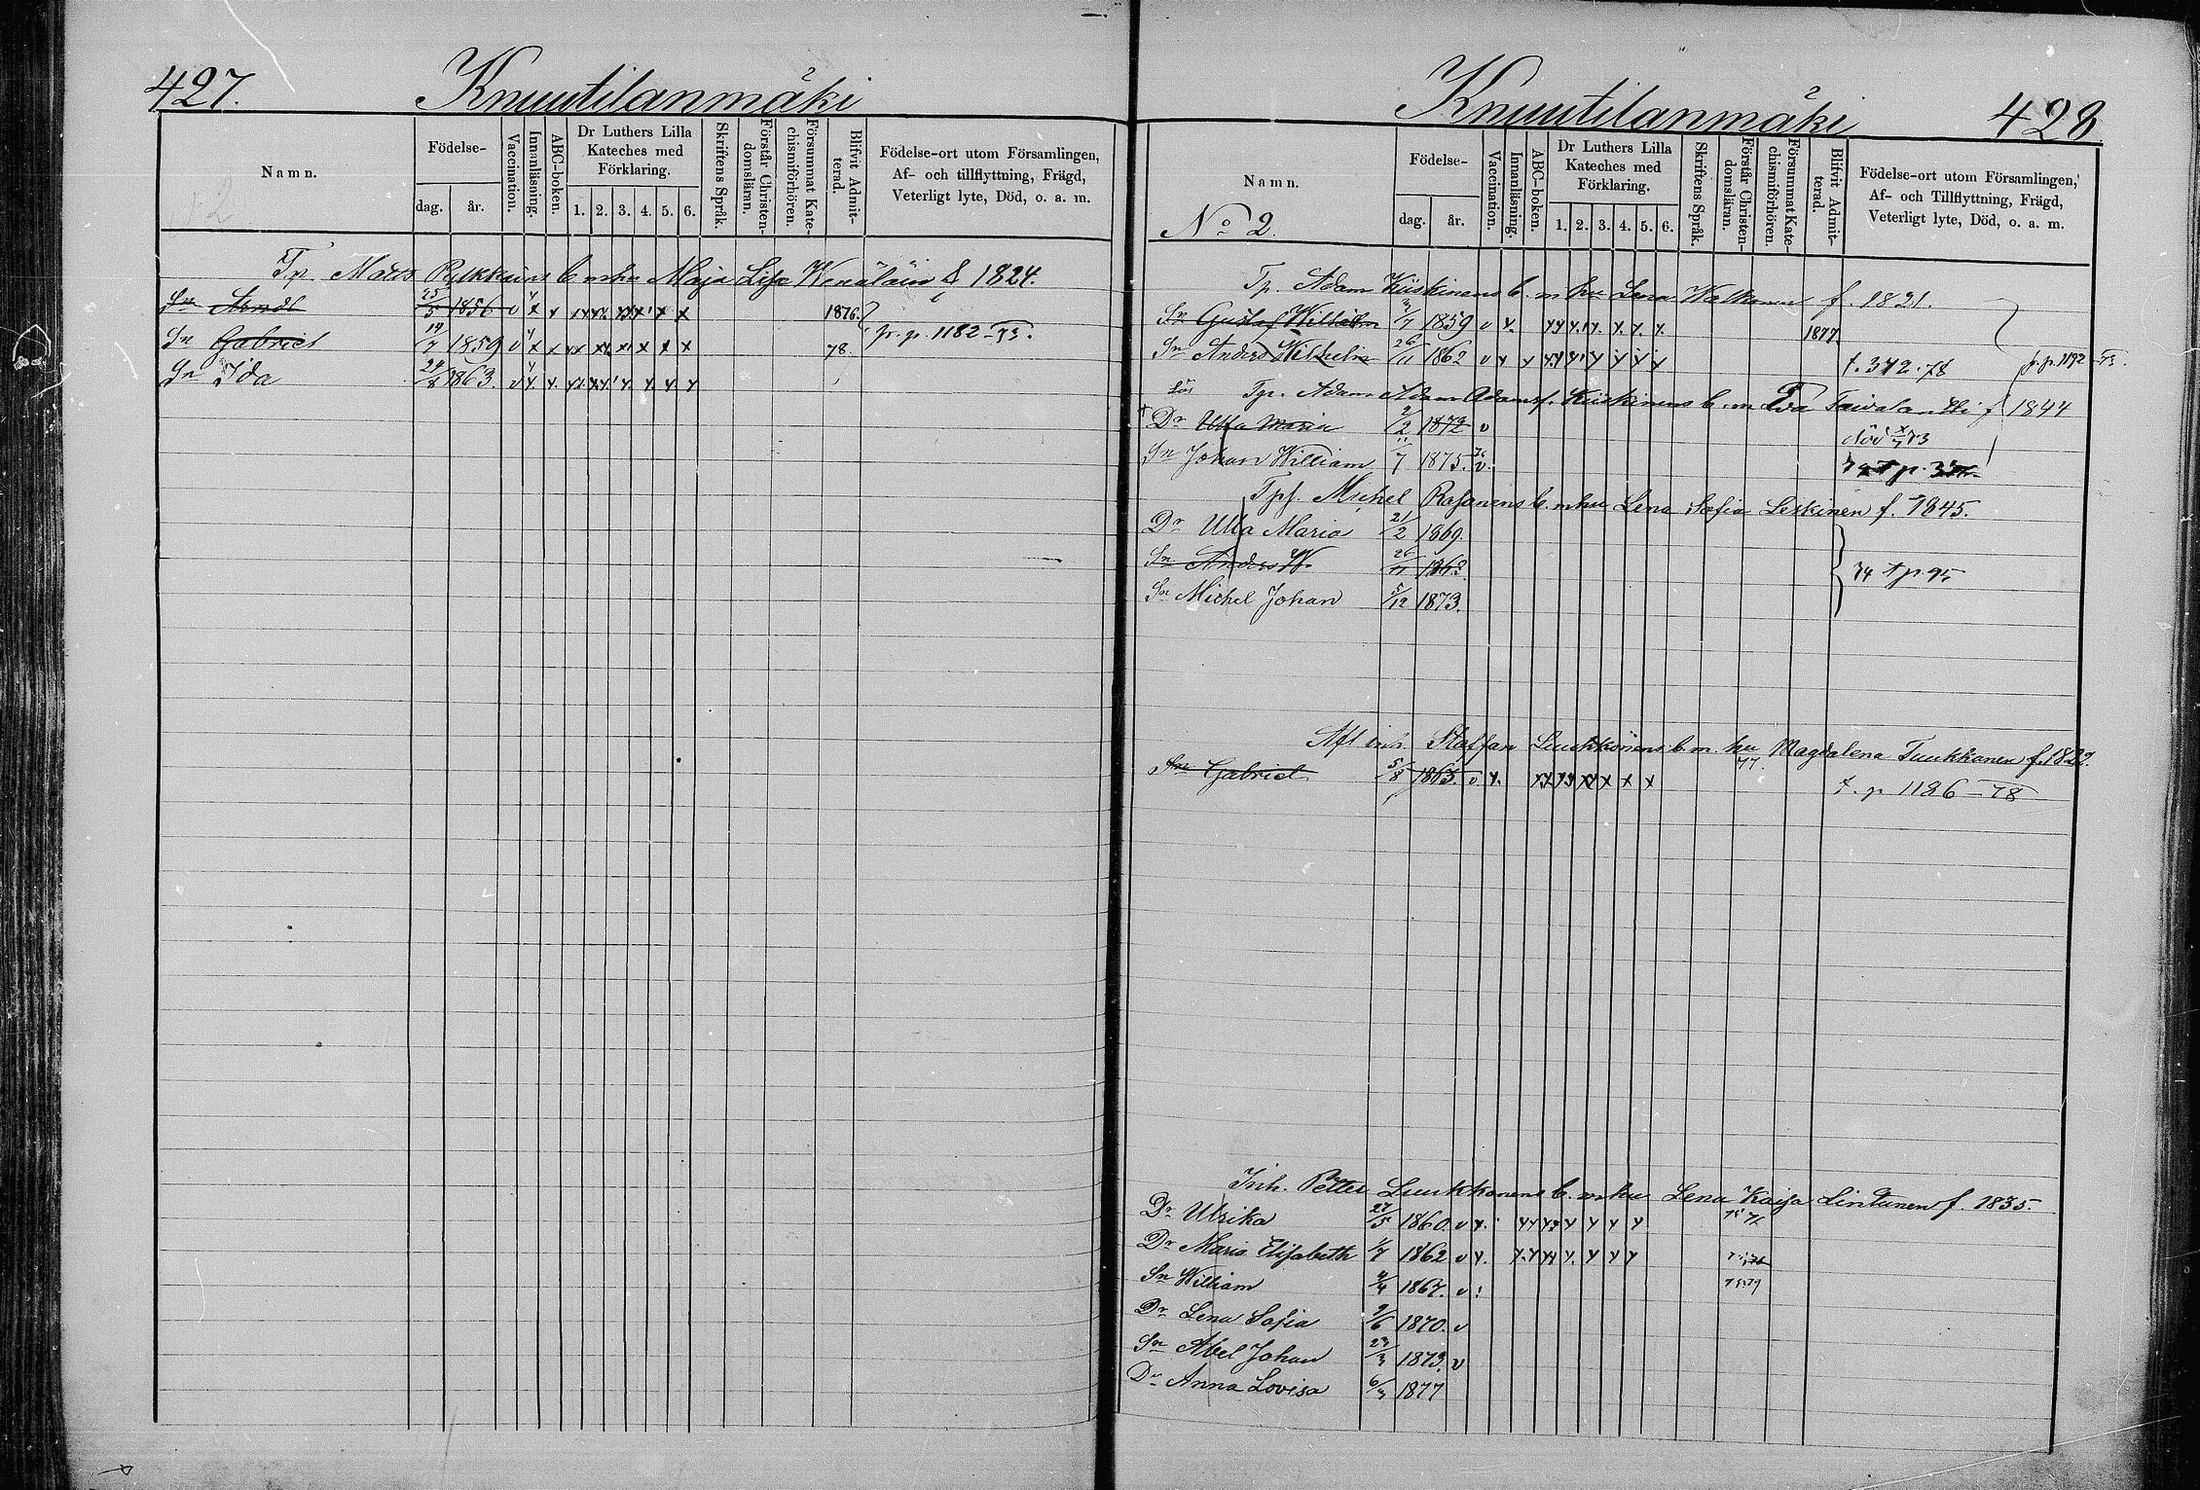 427. Knuutilanmäki
Namn. Födelse- dag. år. Vaccination. Innanläsning. ABC-boken. Dr Luthers Lilla Kateches med Förklaring. 1. 2. 3. 4. 5. 6. Skriftens Språk. Förstår Christendomsläran. Försummat Katechismiförhören. Blifvit Admitterad. Födelse-ort utom Församlingen, Af- och tillflyttning, Frägd, Veterligt lyte, Död, o. a. m.
Tp. Mats b. m hu Maja Lisa f 1824.
Sn 25/5 1856 v x x x x 1876.
Sn Gabriel 19/7 1859 v x x x x x x 78. p. p. 1182-73.
Dr Ida 24/8 1863. v x. x. x. x. x. x
Knuutilanmäki 428
Namn. Födelse- dag. år. Vaccination. Innanläsning. ABC-boken. Dr Luthers Lilla Kateches med Förklaring. 1. 2. 3. 4. 5. 6. Skriftens Språk. Förstår Christendomsläran. Försummat Katechismiförhören. Blifvit Admitterad. Födelse-ort utom Församlingen, Af- och Tillflyttning, Frägd, Veterligt lyte, Död, o. a. m.
No 2.
Tp. Adam Kiiskinens b. m hu Lena f. 1831.
Sn Gustaf Willhelm 1859 v x. x. x. x. 1877
Sn Anders Wilhelm 26/11 1862 v x x x x x x t. 372.78 p. p. 1192
Tp. Adam Adamsf. Kiiskinens b. m Eva f 1844
Dr Ulla Maria 2/2 1872 v
Sn Johan William 11/7 1875. v.
Tpf. Michel b. m hu Lena Sofia Leskinen f. 1845.
Dr Ulla Maria 21/2 1869.
Sn Anders W. 26/11 1862 t p 95
Sn Michel Johan 5/12 1873.
Aft inh. Staffan Luukkonens b. m. hu Magdalena Tuukkanen f. 1822.
Sn Gabriel 5/8 1863. v. x. x x x x 77. t. p 1186-78
Inh. Petter Luukkonens b. m hu Lena Kaisa Lintunen f. 1835.
Dr Ulrika 27/5 1860. v x. x x x x
Dr Maria Elisabeth 1/7 1862 v x. x. x x x
Sn William 4/4 1867. v :
Dr Lena Sofia 2/6 1870. v
Sn Abel Johan 23/3 1873. v
Dr Anna Lovisa 6/3 1877